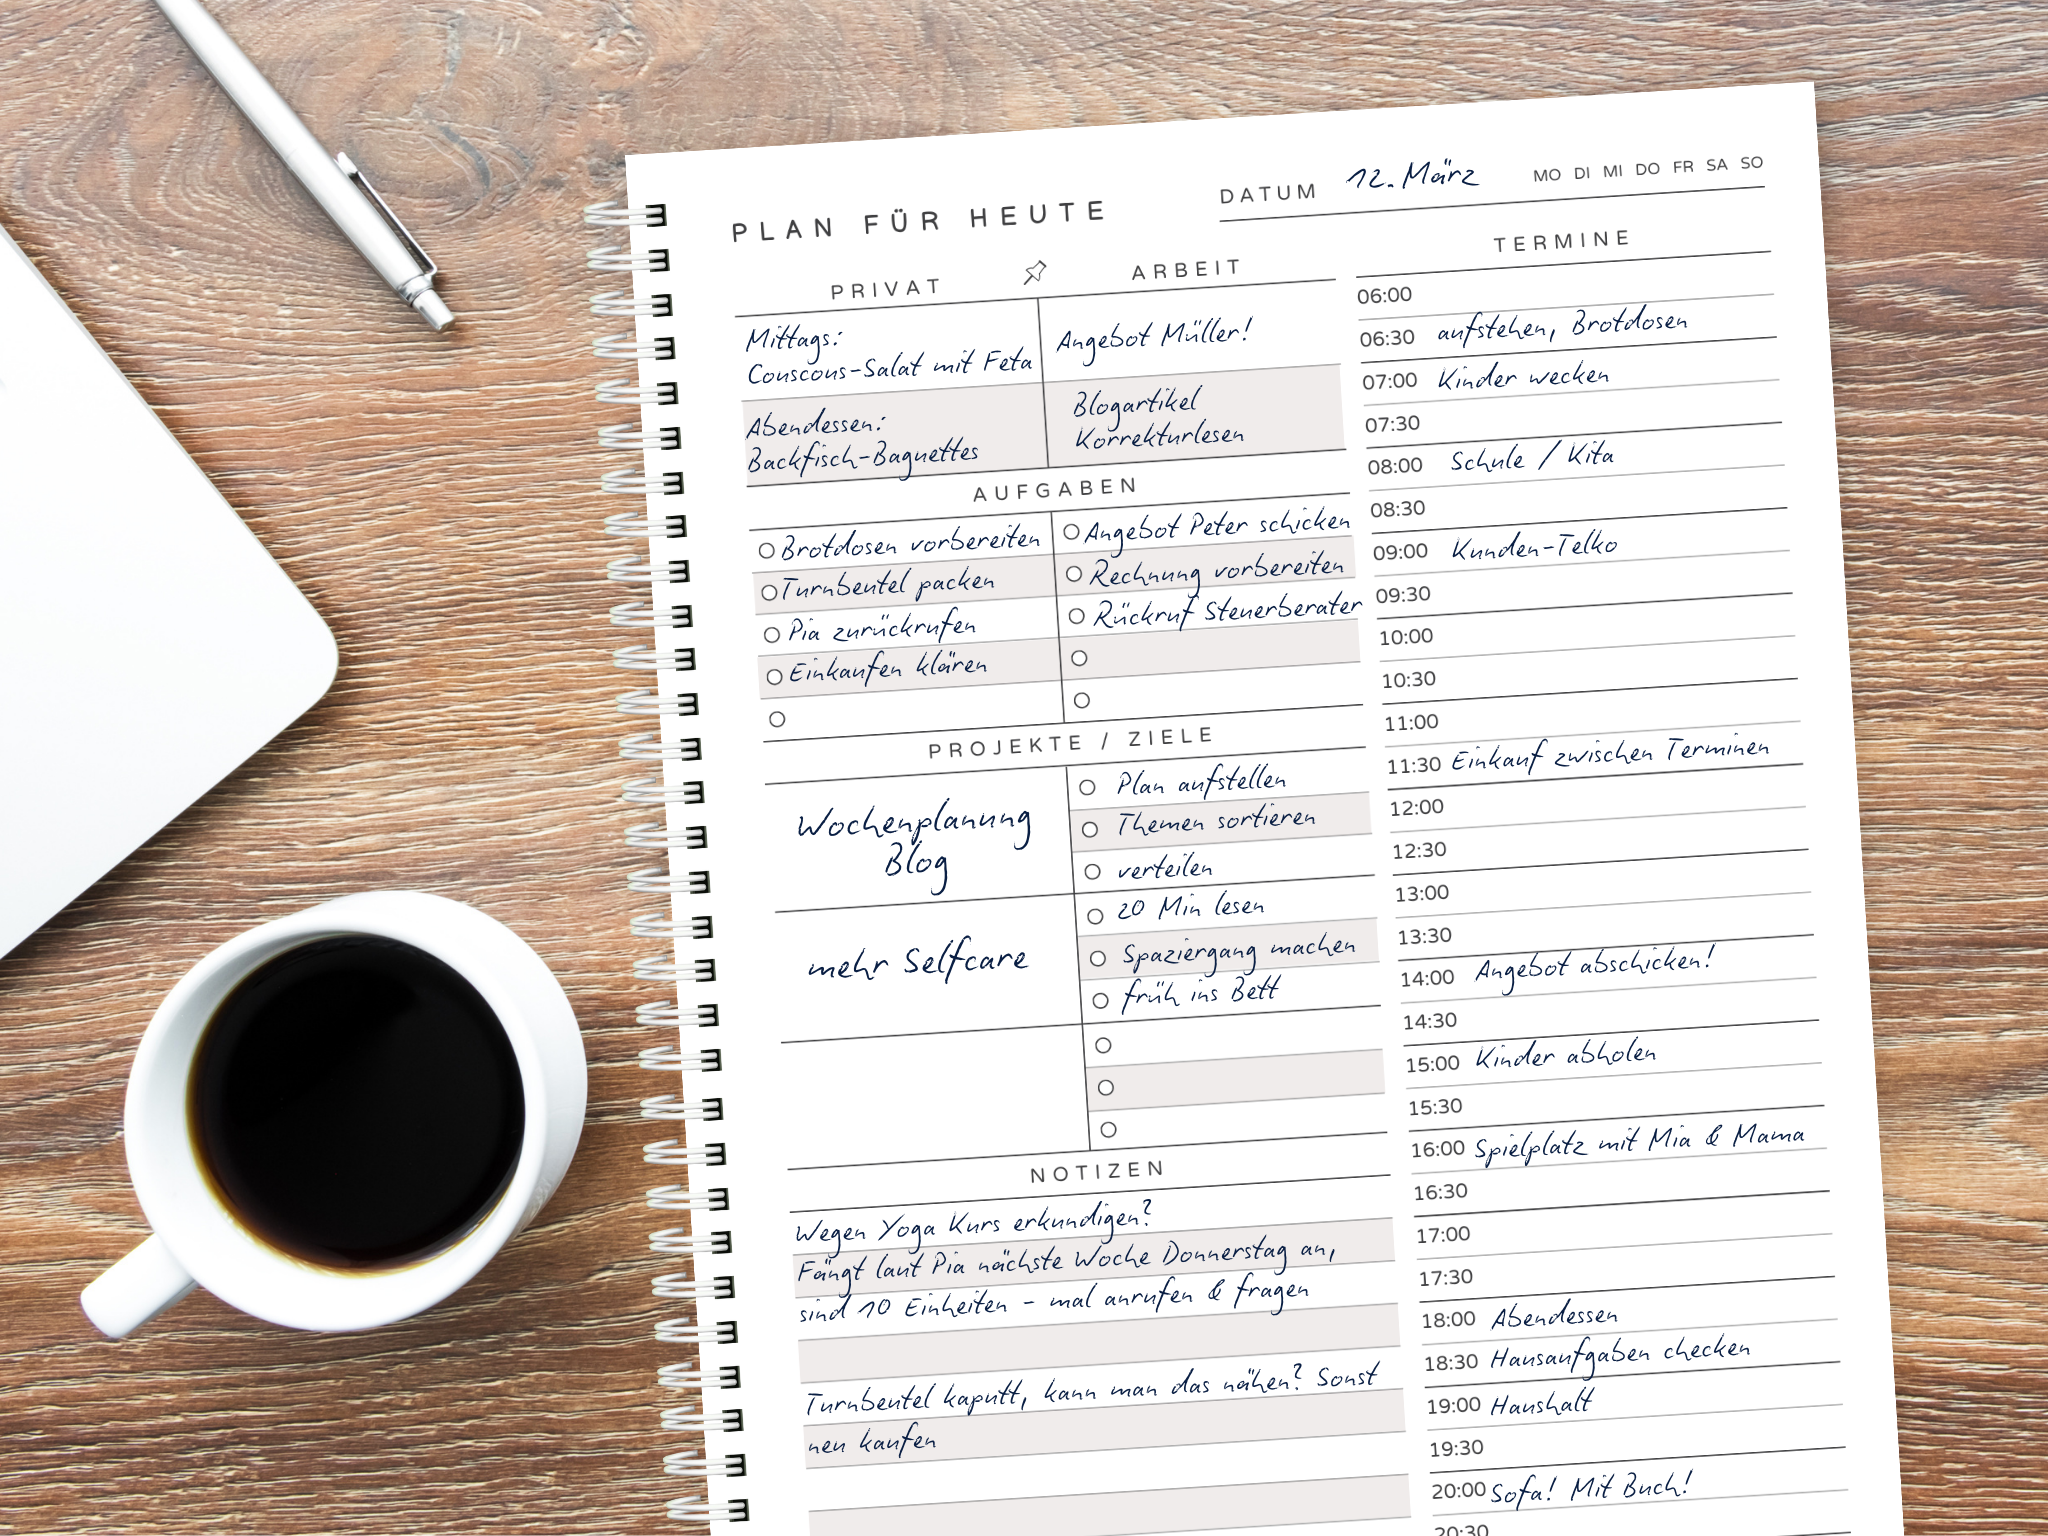 PLAN FÜR HEUTE
DATUM 12. März MO DI MI DO FR SA SO
PRIVAT
Mittags:
Couscous-Salat mit Feta
Abendessen:
Backfisch-Baguettes
ARBEIT
Angebot Müller!
Blogartikel
Korrekturlesen
AUFGABEN
Brotdosen vorbereiten
Turnbeutel packen
Pia zurückrufen
Einkaufen klären
Angebot Peter schicken
Rechnung vorbereiten
Rückruf Steuerberater
PROJEKTE / ZIELE
Wochenplanung
Blog
Plan aufstellen
Themen sortieren
verteilen
mehr Selfcare
20 Min lesen
Spaziergang machen
früh ins Bett
NOTIZEN
Wegen Yoga Kurs erkundigen?
Fängt laut Pia nächste Woche Donnerstag an,
sind 10 Einheiten - mal anrufen & fragen
Turnbeutel kaputt, kann man das nähen? Sonst
neu kaufen
TERMINE
06:00
06:30 aufstehen, Brotdosen
07:00 Kinder wecken
07:30
08:00 Schule / Kita
08:30
09:00 Kunden-Telko
09:30
10:00
10:30
11:00
11:30 Einkauf zwischen Terminen
12:00
12:30
13:00
13:30
14:00 Angebot abschicken!
14:30
15:00 Kinder abholen
15:30
16:00 Spielplatz mit Mia & Mama
16:30
17:00
17:30
18:00 Abendessen
18:30 Hausaufgaben checken
19:00 Haushalt
19:30
20:00 Sofa! Mit Buch!
20:30